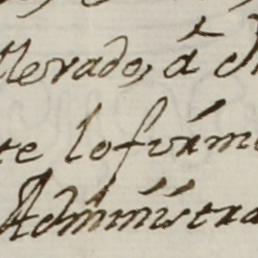 llevado, á
te lo firmé
Administra